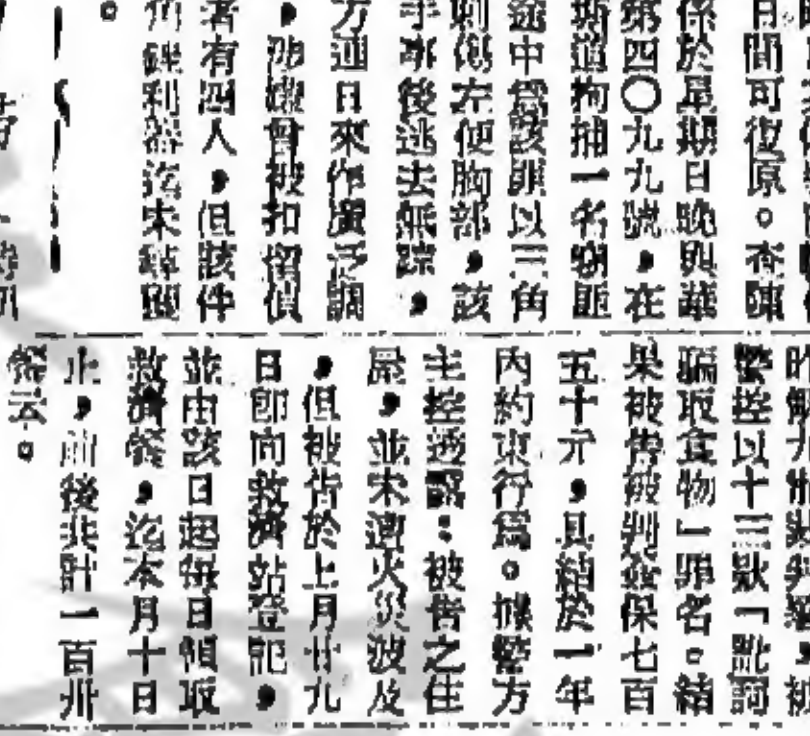 日間可復原。查陳
係於星期日晚與華
第四〇九九號,在
斯道拘捕一名竊匪
途中爲該罪以三角
刺傷左便胸部,該
手事後逃去無踪,
方連日來作廣泛調
,涉嫌曾被扣留偵
者有四人,但該件
角銼利器迄未尋獲
。
警控以十三欵「訛詞
騙取食物」罪名。結
果被告被判簽保七百
五十元,具結於一年
內約束行爲。據警方
主控透露:被告之住
屋,並未遭火災波及
,但被告於上月廿九
日卽向救濟站登記,
並由該日起每日領取
救濟餐,迄本月十日
止,前後共計一百卅
餐云。